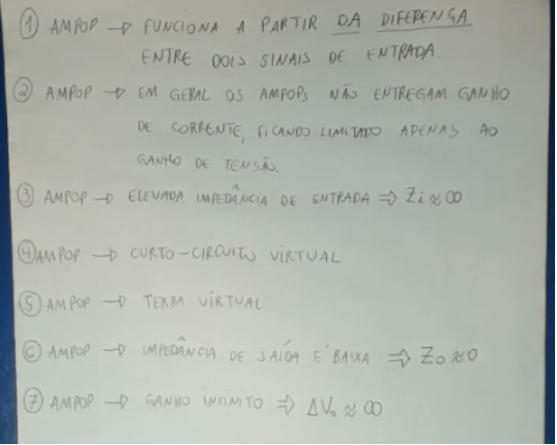 ① AMPOP → FUNCIONA A PARTIR DA DIFERENÇA
ENTRE DOIS SINAIS DE ENTRADA.
② AMPOP → EM GERAL OS AMPOPs NÃO ENTREGAM GANHO
DE CORRENTE, FICANDO LIMITADO APENAS AO
GANHO DE TENSÃO.
③ AMPOP → ELEVADA IMPEDÂNCIA DE ENTRADA ⇒ Zi ≈ ∞
④ AMPOP → CURTO-CIRCUITO VIRTUAL
⑤ AMPOP → TERRA VIRTUAL
⑥ AMPOP → IMPEDÂNCIA DE SAÍDA É BAIXA ⇒ Zo ≈ 0
⑦ AMPOP → GANHO INFINITO ⇒ ΔVo ≈ ∞